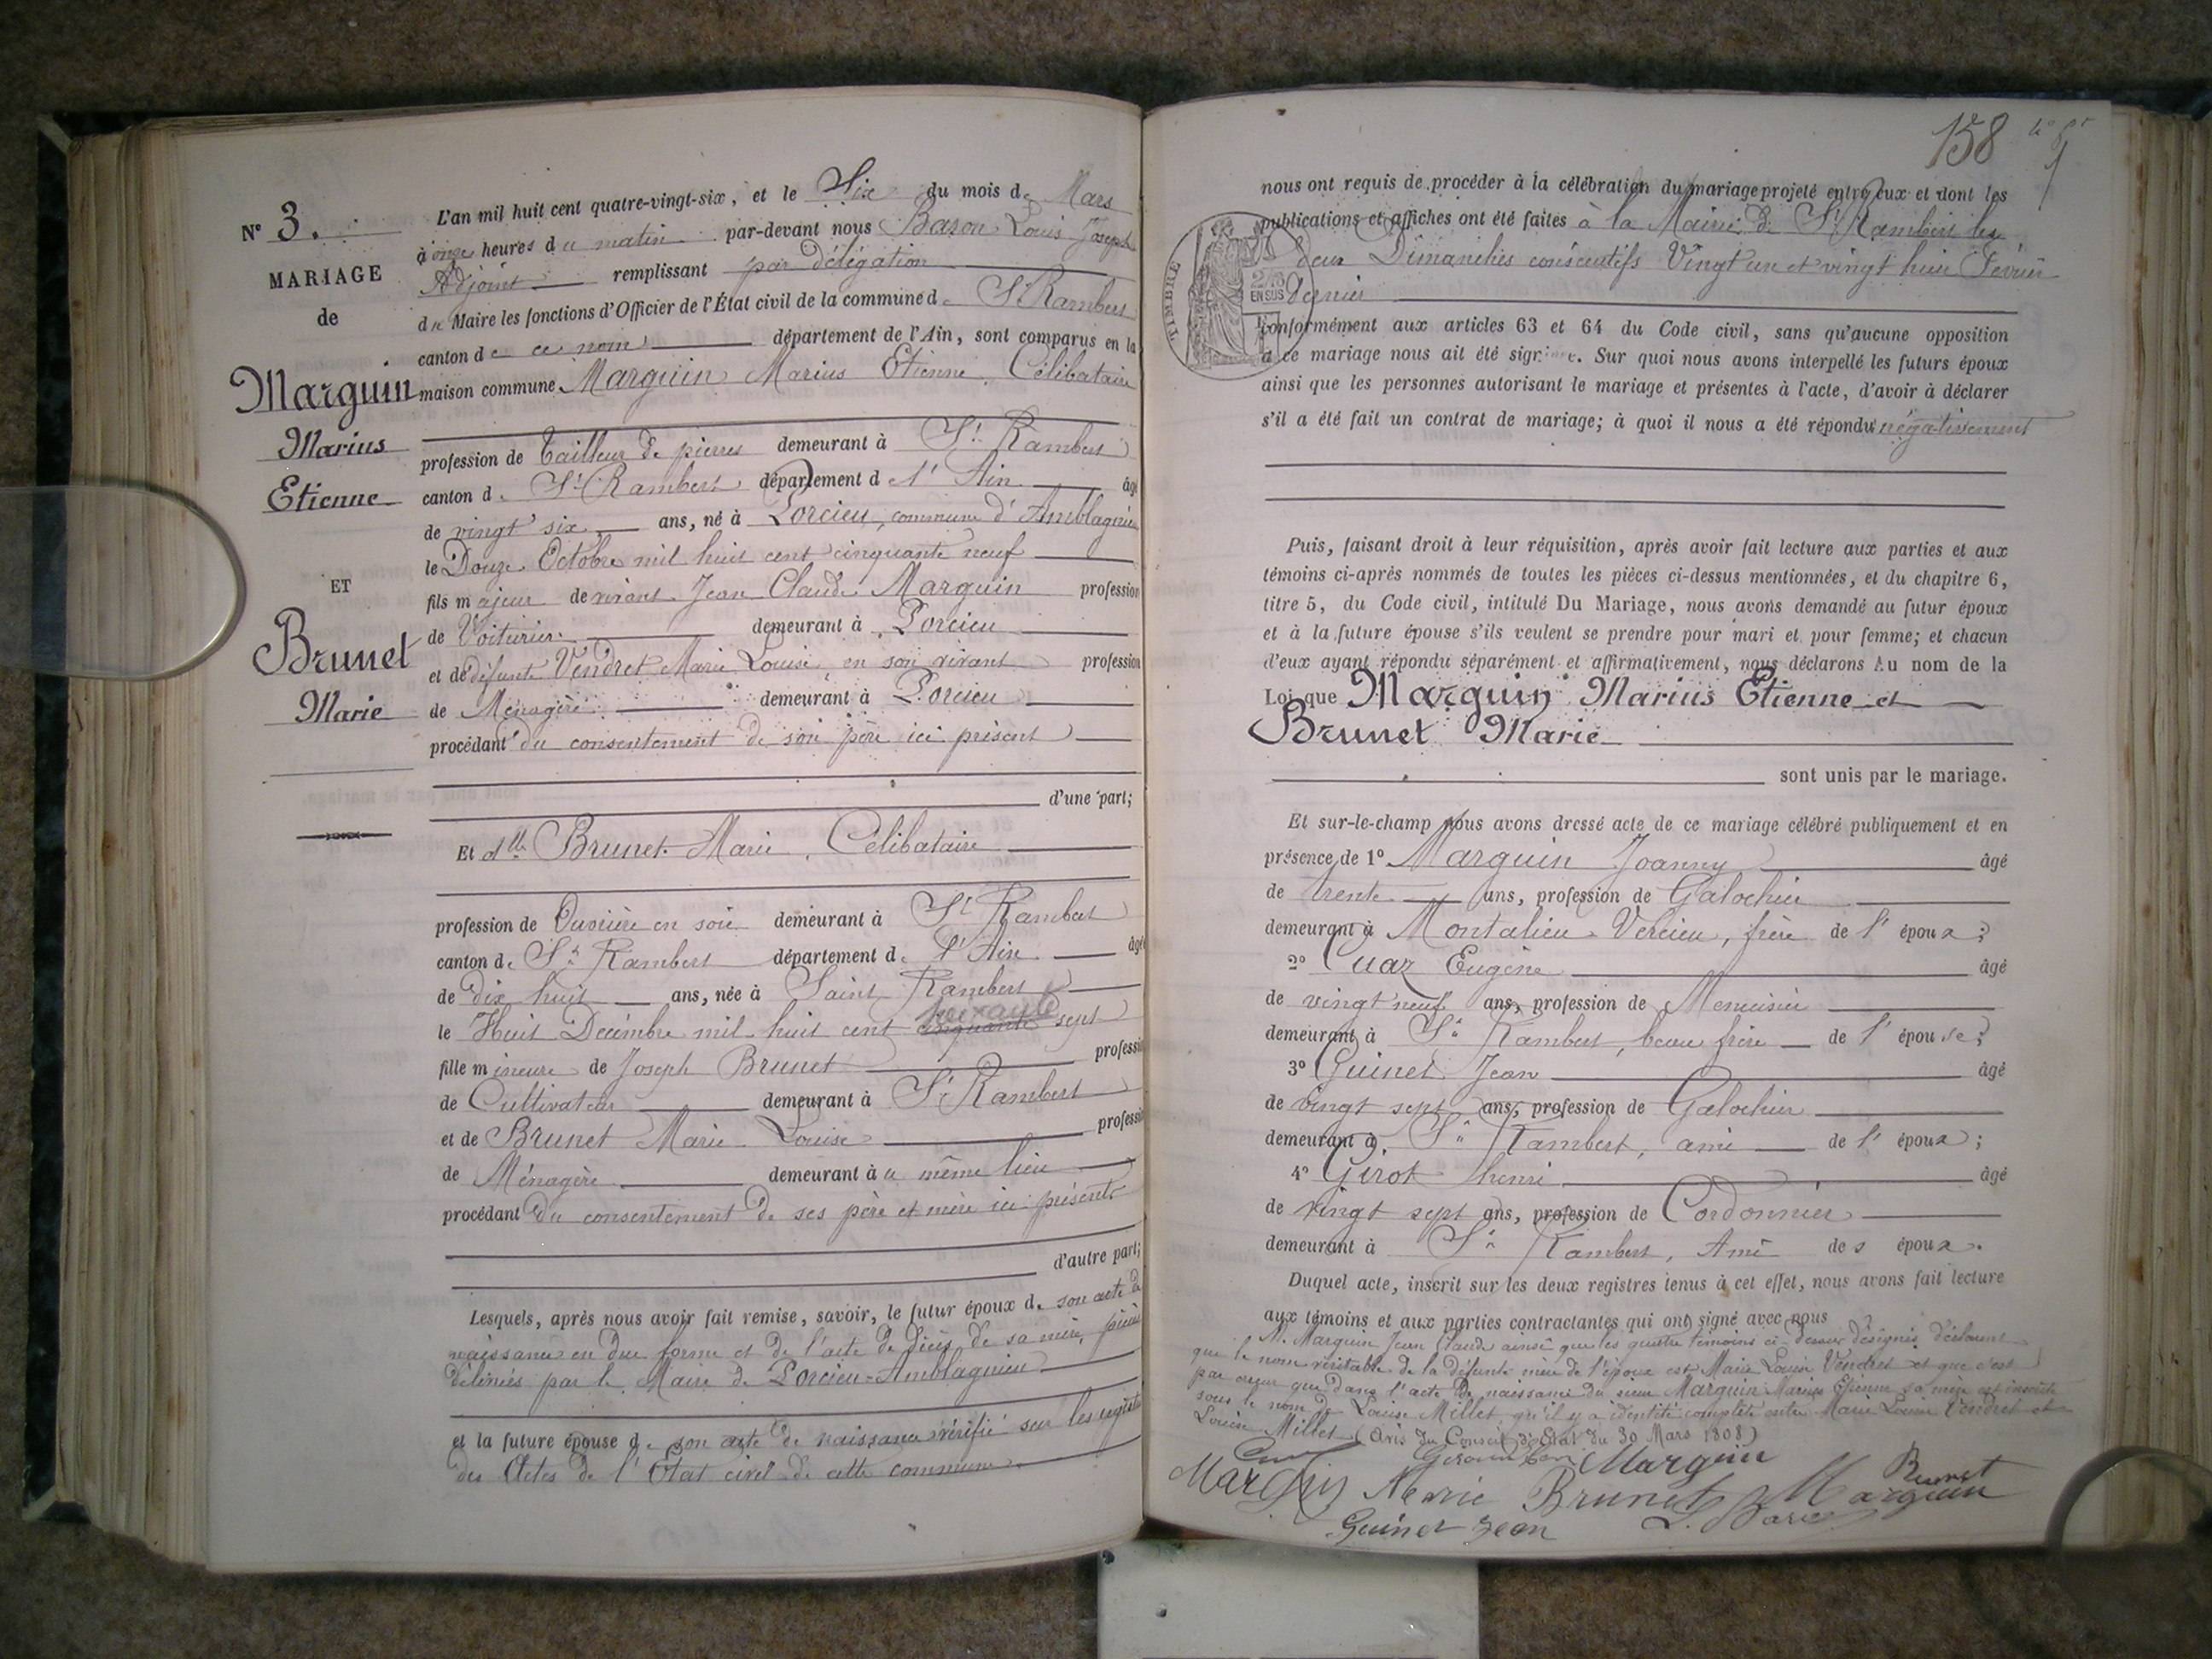 N° 3.
MARIAGE
de
Marguin
Marius
Etienne
ET
Brunet
Marie
L'an mil huit cent quatre-vingt-six, et le Six du mois de Mars
à onze heures du matin par-devant nous Baron Louis Joseph
Adjoint remplissant par délégation
du Maire les fonctions d'Officier de l'État civil de la commune de St Rambert
canton de ce nom département de l'Ain, sont comparus en la
maison commune Marguin Marius Etienne, Célibataire
profession de tailleur de pierres demeurant à St Rambert
canton de St Rambert département de l'Ain âgé
de vingt six ans, né à Porcieu, commune d'Amblagnieu
le Douze Octobre mil huit cent cinquante neuf
fils majeur de vivant Jean Claude Marguin profession
de Voiturier demeurant à Porcieu
et de défunte Vendret Marie Louise en son vivant profession
de Ménagère demeurant à Porcieu
procédant du consentement de son père ici présent
d'une part;
Et dlle Brunet Marie, Célibataire
profession de Ouvrière en soie demeurant à St Rambert
canton de St Rambert département de l'Ain âgée
de dix huit ans, née à Saint Rambert
le Huit Décembre mil huit cent cinquante soixante sept
fille mineure de Joseph Brunet profession
de Cultivateur demeurant à St Rambert
et de Brunet Marie Louise profession
de Ménagère demeurant au même lieu
procédant du consentement de ses père et mère ici présents
d'autre part;
Lesquels, après nous avoir fait remise, savoir, le futur époux de son acte de
naissance en due forme et de l'acte de décès de sa mère, pièces
délivrées par le Maire de Porcieu-Amblagnieu
et la future épouse de son acte de naissance vérifié sur les registres
des Actes de l'Etat civil de cette commune
158
TIMBRE
EN SUS
nous ont requis de procéder à la célébration du mariage projeté entre eux et dont les
publications et affiches ont été faites à la Mairie de St Rambert les
deux Dimanches consécutifs Vingt un et vingt huit Février
dernier
Conformément aux articles 63 et 64 du Code civil, sans qu'aucune opposition
à ce mariage nous ait été signifiée. Sur quoi nous avons interpellé les futurs époux
ainsi que les personnes autorisant le mariage et présentes à l'acte, d'avoir à déclarer
s'il a été fait un contrat de mariage; à quoi il nous a été répondu négativement
Puis, faisant droit à leur réquisition, après avoir fait lecture aux parties et aux
témoins ci-après nommés de toutes les pièces ci-dessus mentionnées, et du chapitre 6,
titre 5, du Code civil, intitulé Du Mariage, nous avons demandé au futur époux
et à la future épouse s'ils veulent se prendre pour mari et pour femme; et chacun
d'eux ayant répondu séparément et affirmativement, nous déclarons Au nom de la
Loi que Marguin Marius Etienne et
Brunet Marie
sont unis par le mariage.
Et sur-le-champ nous avons dressé acte de ce mariage célébré publiquement et en
présence de 1° Marguin Joanny âgé
de trente ans, profession de Galochier
demeurant à Montalieu-Vercieu, frère de l'époux;
2° Cuaz Eugène âgé
de vingt neuf ans, profession de Menuisier
demeurant à St Rambert, beau frère de l'épouse;
3° Guinet Jean âgé
de vingt sept ans, profession de Galochier
demeurant à St Rambert, ami de l'époux;
4° Girot henri âgé
de vingt sept ans, profession de Cordonnier
demeurant à St Rambert, Ami des époux.
Duquel acte, inscrit sur les deux registres tenus à cet effet, nous avons fait lecture
aux témoins et aux parties contractantes qui ont signé avec nous
M. Marguin Jean Claude ainsi que les quatre témoins ci-dessus désignés déclarent
que le nom véritable de la défunte mère de l'époux est Marie Louise Vendret et que c'est
par erreur que dans l'acte de naissance du sieur Marguin Marius Etienne sa mère est inscrite
sous le nom de Louise Millet, qu'il y a identité complète entre Marie Louise Vendret et
Louise Millet (Avis du Conseil d'Etat du 30 Mars 1808)
Marguin
Brunet
Marguin Marie Brunet Marguin
Guinet Jean L. Baron